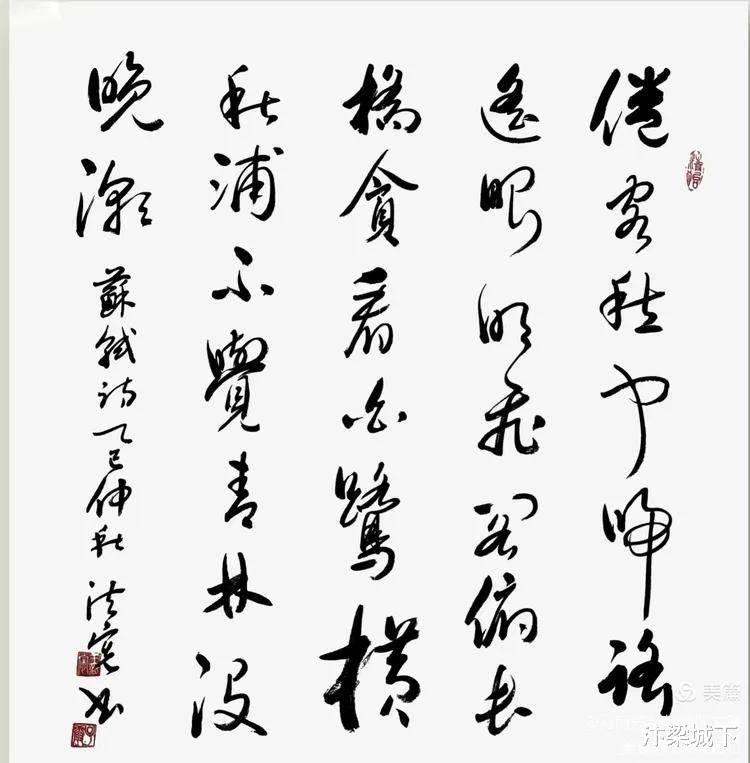 倦客愁聞歸路
遙眼明飛閣俯長
橋貪看白鷺橫
秋浦不覺青林没
晚潮 蘇軾詩乙巳仲秋 書
美篇
汴梁城下